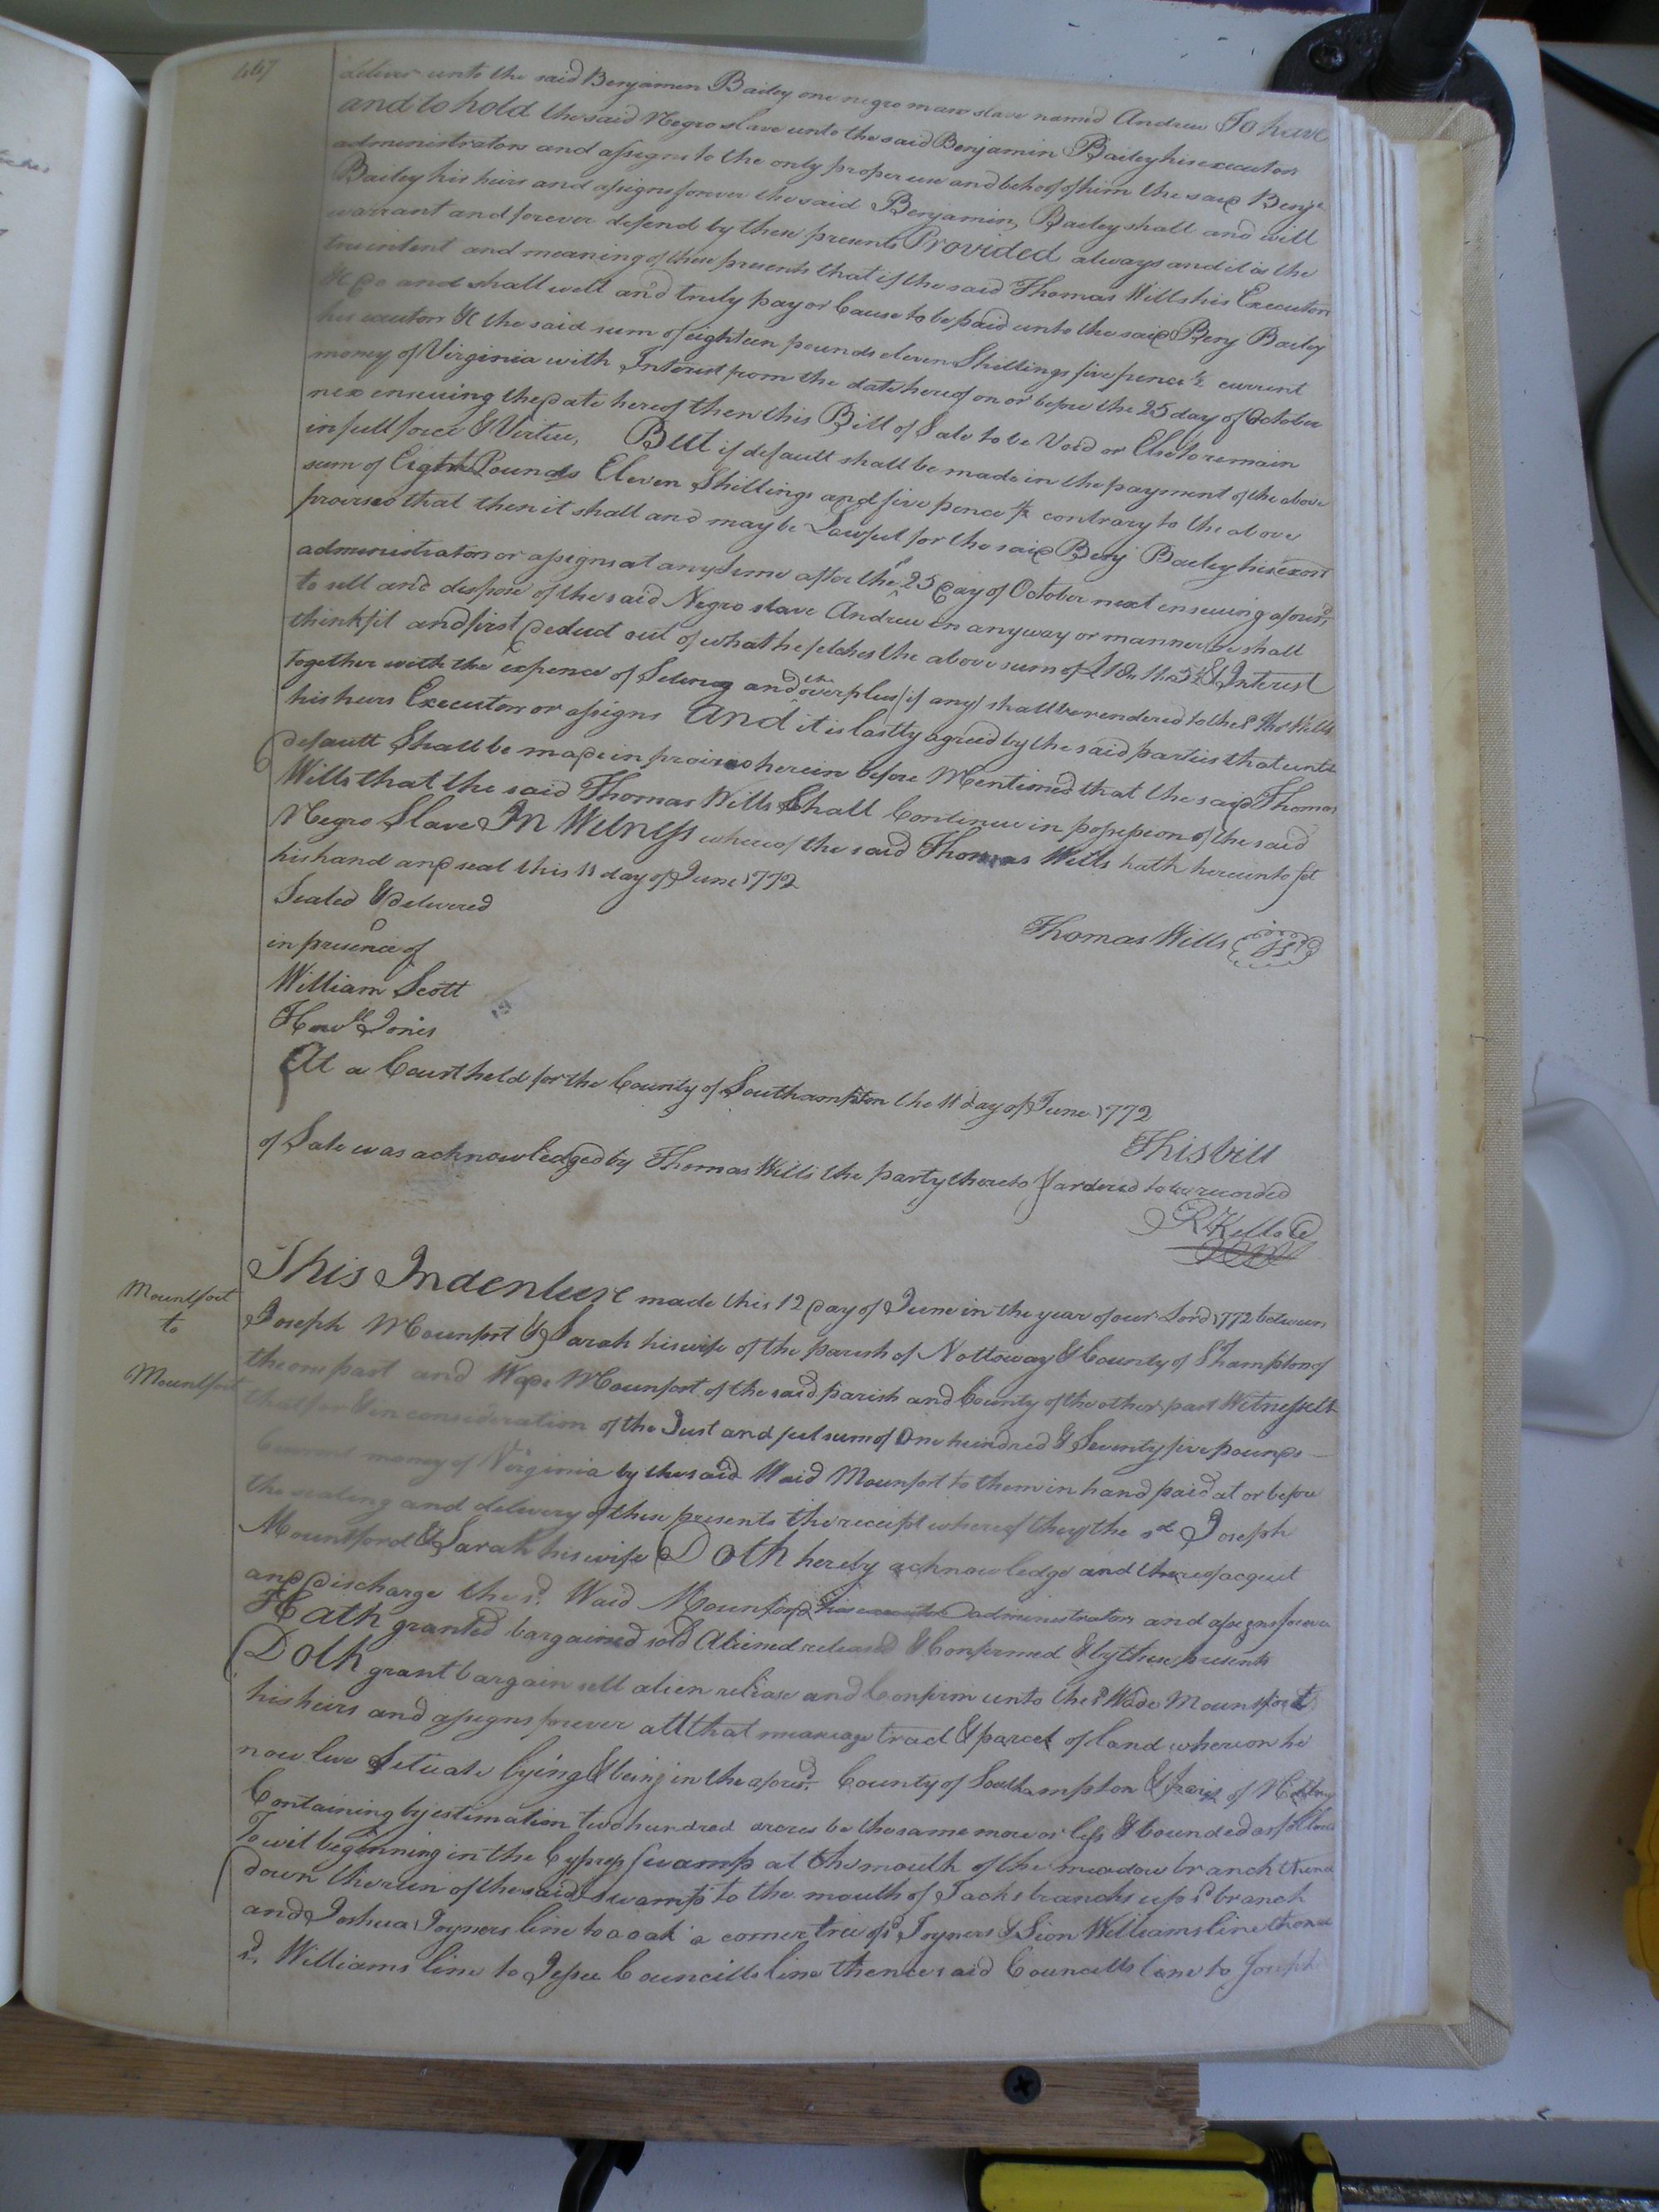 447
deliver unto the said Benjamin Bailey one negro man slave named Andrew To have
and to hold the said Negro slave unto the said Benjamin Bailey his executors
administrators and assigns to the only proper use and behoof of him the said Benjn
Bailey his heirs and assigns forever the said Benjamin Bailey shall and will
warrant and forever defend by these presents Provided always and it is the
true intent and meaning of these presents that if the said Thomas Wills his Executors
&c do and shall well and truly pay or Cause to be paid unto the said Benj Bailey
his executors &c the said sum of eighteen pounds eleven Shillings five pence ½ current
money of Virginia with Interest from the date hereof on or before the 25 day of October
nex ensuing the date hereof then this Bill of Sale to be Void or Else to remain
in full force & Virtue, But if default shall be made in the payment of the above
sum of Eight Pounds Eleven Shillings and five pence ½ contrary to the above
proviso that then it shall and may be Lawful for the said Benj Bailey his exors
administrators or assigns at any time after the 25 day of October next ensuing aforesd
to sell and dispose of the said Negro slave Andrew in any way or manner he shall
think fit and first deduct out of what he fetches the above sum of £18 11 5½ & Interest
together with the expence of Seling and the overplus (if any) shall be rendered to the sd Thos Wills
his heirs Executors or assigns And it is lastly agreed by the said parties that until
default Shall be made in proviso herein before Mentioned that the said Thomas
Wills that the said Thomas Wills Shall Continue in possession of the said
Negro Slave In Witness whereof the said Thomas Wills hath hereunto set
his hand and seal this 11 day of June 1772
Sealed & delivered
Thomas Wills LS
in presence of
William Scott
Howll Jones
At a Court held for the County of Southampton the 11 day of June 1772
This bill
of Sale was acknowledged by Thomas Wills the party thereto & ordered to be recorded
R Kello
This Indenture made this 12 day of June in the year of our Lord 1772 between
Mountfort
to
Mountfort
Joseph Mounfort & Sarah his wife of the parish of Nottoway & County of SHampton of
the one part and Wade Mounfort of the said parish and County of the other part Witnesseth
that for & in consideration of the Just and full sum of One hundred & Seventy five pounds
Current money of Virginia by the said Waid Mounfort to them in hand paid at or before
the sealing and delivery of these presents the receipt whereof they the sd Joseph
Mountford & Sarah his wife Doth hereby acknowledge and thereof acquit
and discharge the sd. Waid Mounford his executors administrators and assigns forever
Hath granted bargained sold Aliened released & Confirmed & by these presents
Doth grant bargain sell alien release and Confirm unto the sd Wade Mountford
his heirs and assigns forever all that tract & parcel of land whereon he
now live Situate lying & being in the aforesd. County of Southampton & of
Containing by estimation two hundred acres be the same more or less & bounded as follows
To wit beginning in the Cypress swamp at the mouth of the meadow branch thence
down the run of the said swamp to the mouth of Jacks branch up sd branch
and Joshua Joyners line to a oak a corner tree of sd Joyners & Sion Williams line thence
sd. Williams line to Jesse Councills line thence said Councills line to Joseph